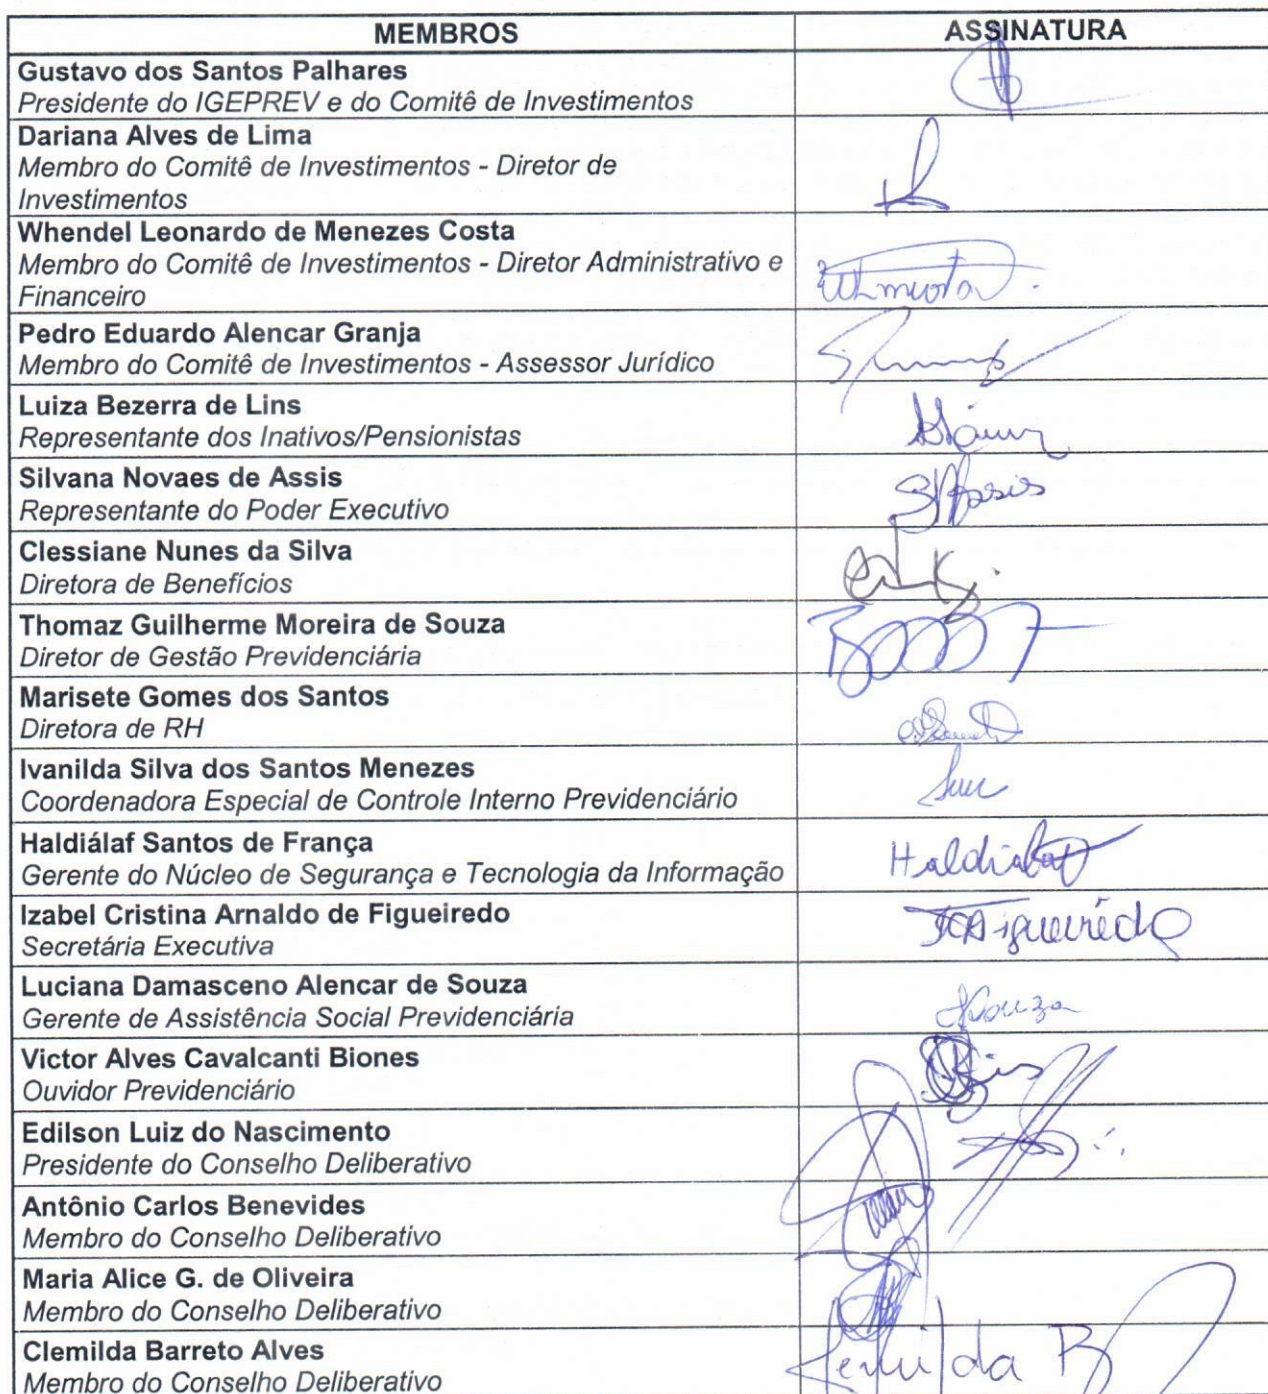 MEMBROS
ASSINATURA
Gustavo dos Santos Palhares
Presidente do IGEPREV e do Comitê de Investimentos
Dariana Alves de Lima
Membro do Comitê de Investimentos - Diretor de
Investimentos
Whendel Leonardo de Menezes Costa
Membro do Comitê de Investimentos - Diretor Administrativo e
Financeiro
Pedro Eduardo Alencar Granja
Membro do Comitê de Investimentos - Assessor Jurídico
Luiza Bezerra de Lins
Representante dos Inativos/Pensionistas
Silvana Novaes de Assis
Representante do Poder Executivo
Clessiane Nunes da Silva
Diretora de Benefícios
Thomaz Guilherme Moreira de Souza
Diretor de Gestão Previdenciária
Marisete Gomes dos Santos
Diretora de RH
Ivanilda Silva dos Santos Menezes
Coordenadora Especial de Controle Interno Previdenciário
Haldiálaf Santos de França
Gerente do Núcleo de Segurança e Tecnologia da Informação
Izabel Cristina Arnaldo de Figueiredo
Secretária Executiva
Luciana Damasceno Alencar de Souza
Gerente de Assistência Social Previdenciária
Victor Alves Cavalcanti Biones
Ouvidor Previdenciário
Edilson Luiz do Nascimento
Presidente do Conselho Deliberativo
Antônio Carlos Benevides
Membro do Conselho Deliberativo
Maria Alice G. de Oliveira
Membro do Conselho Deliberativo
Clemilda Barreto Alves
Membro do Conselho Deliberativo